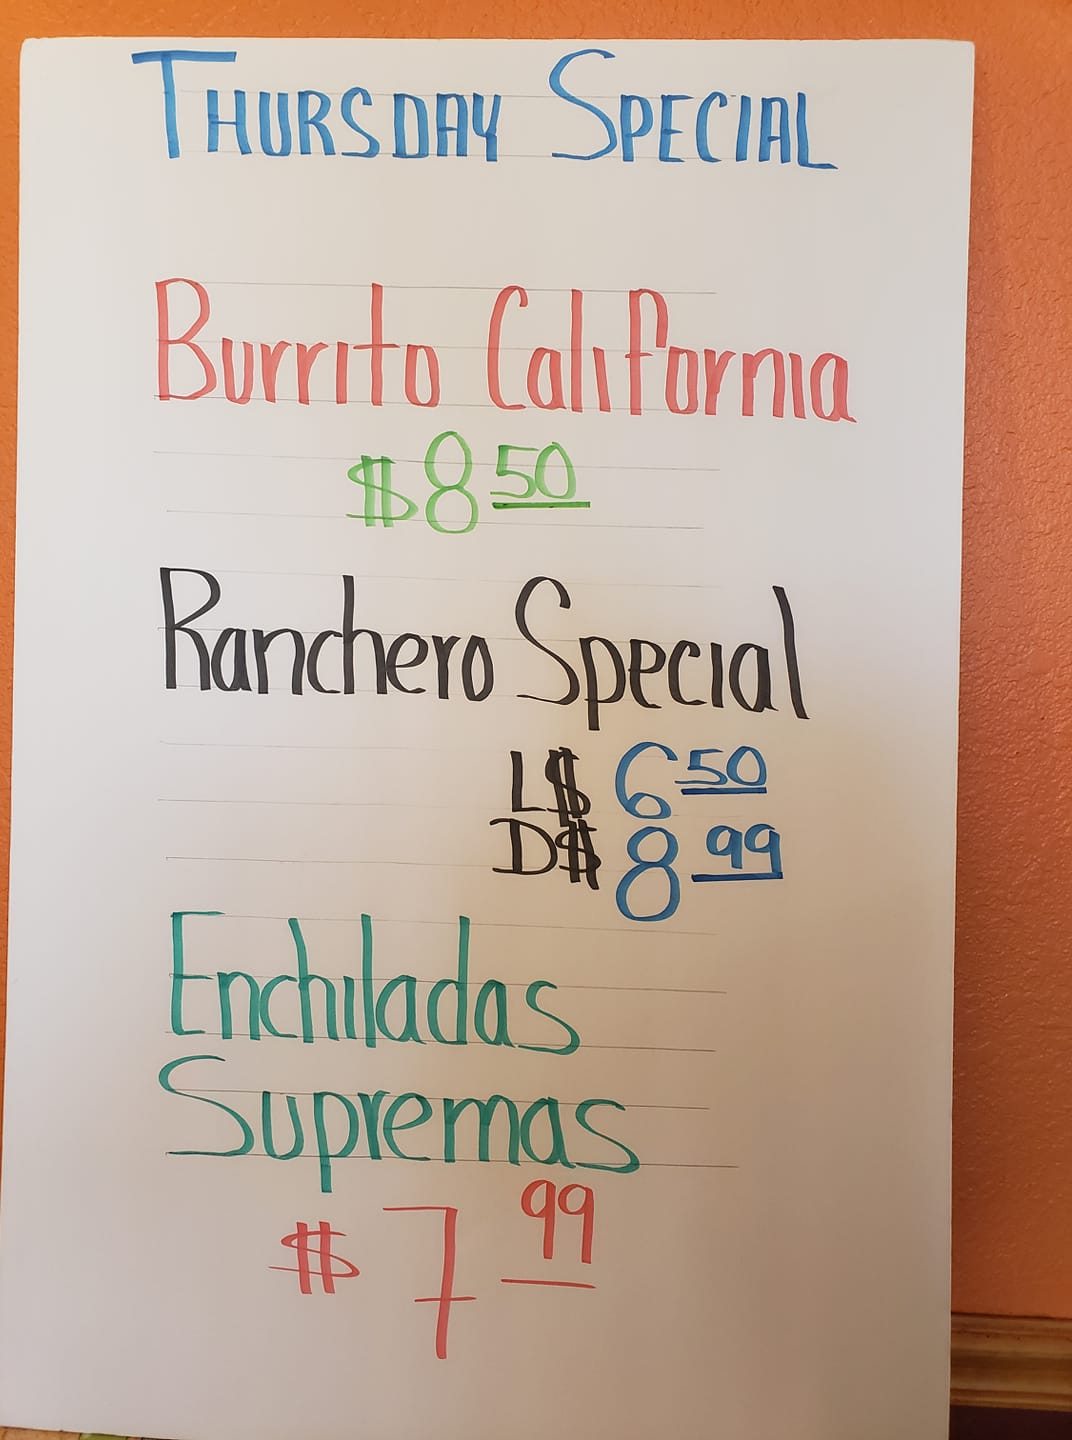 THURSDAY SPECIAL
Burrito California
$8 50
Ranchero Special
L$ 6 50
D$ 8 99
Enchiladas
Supremas
$ 7 99